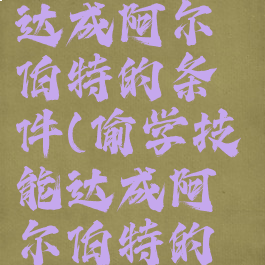 达成阿尔
伯特的条
件(偷学技
能达成阿
尔伯特的